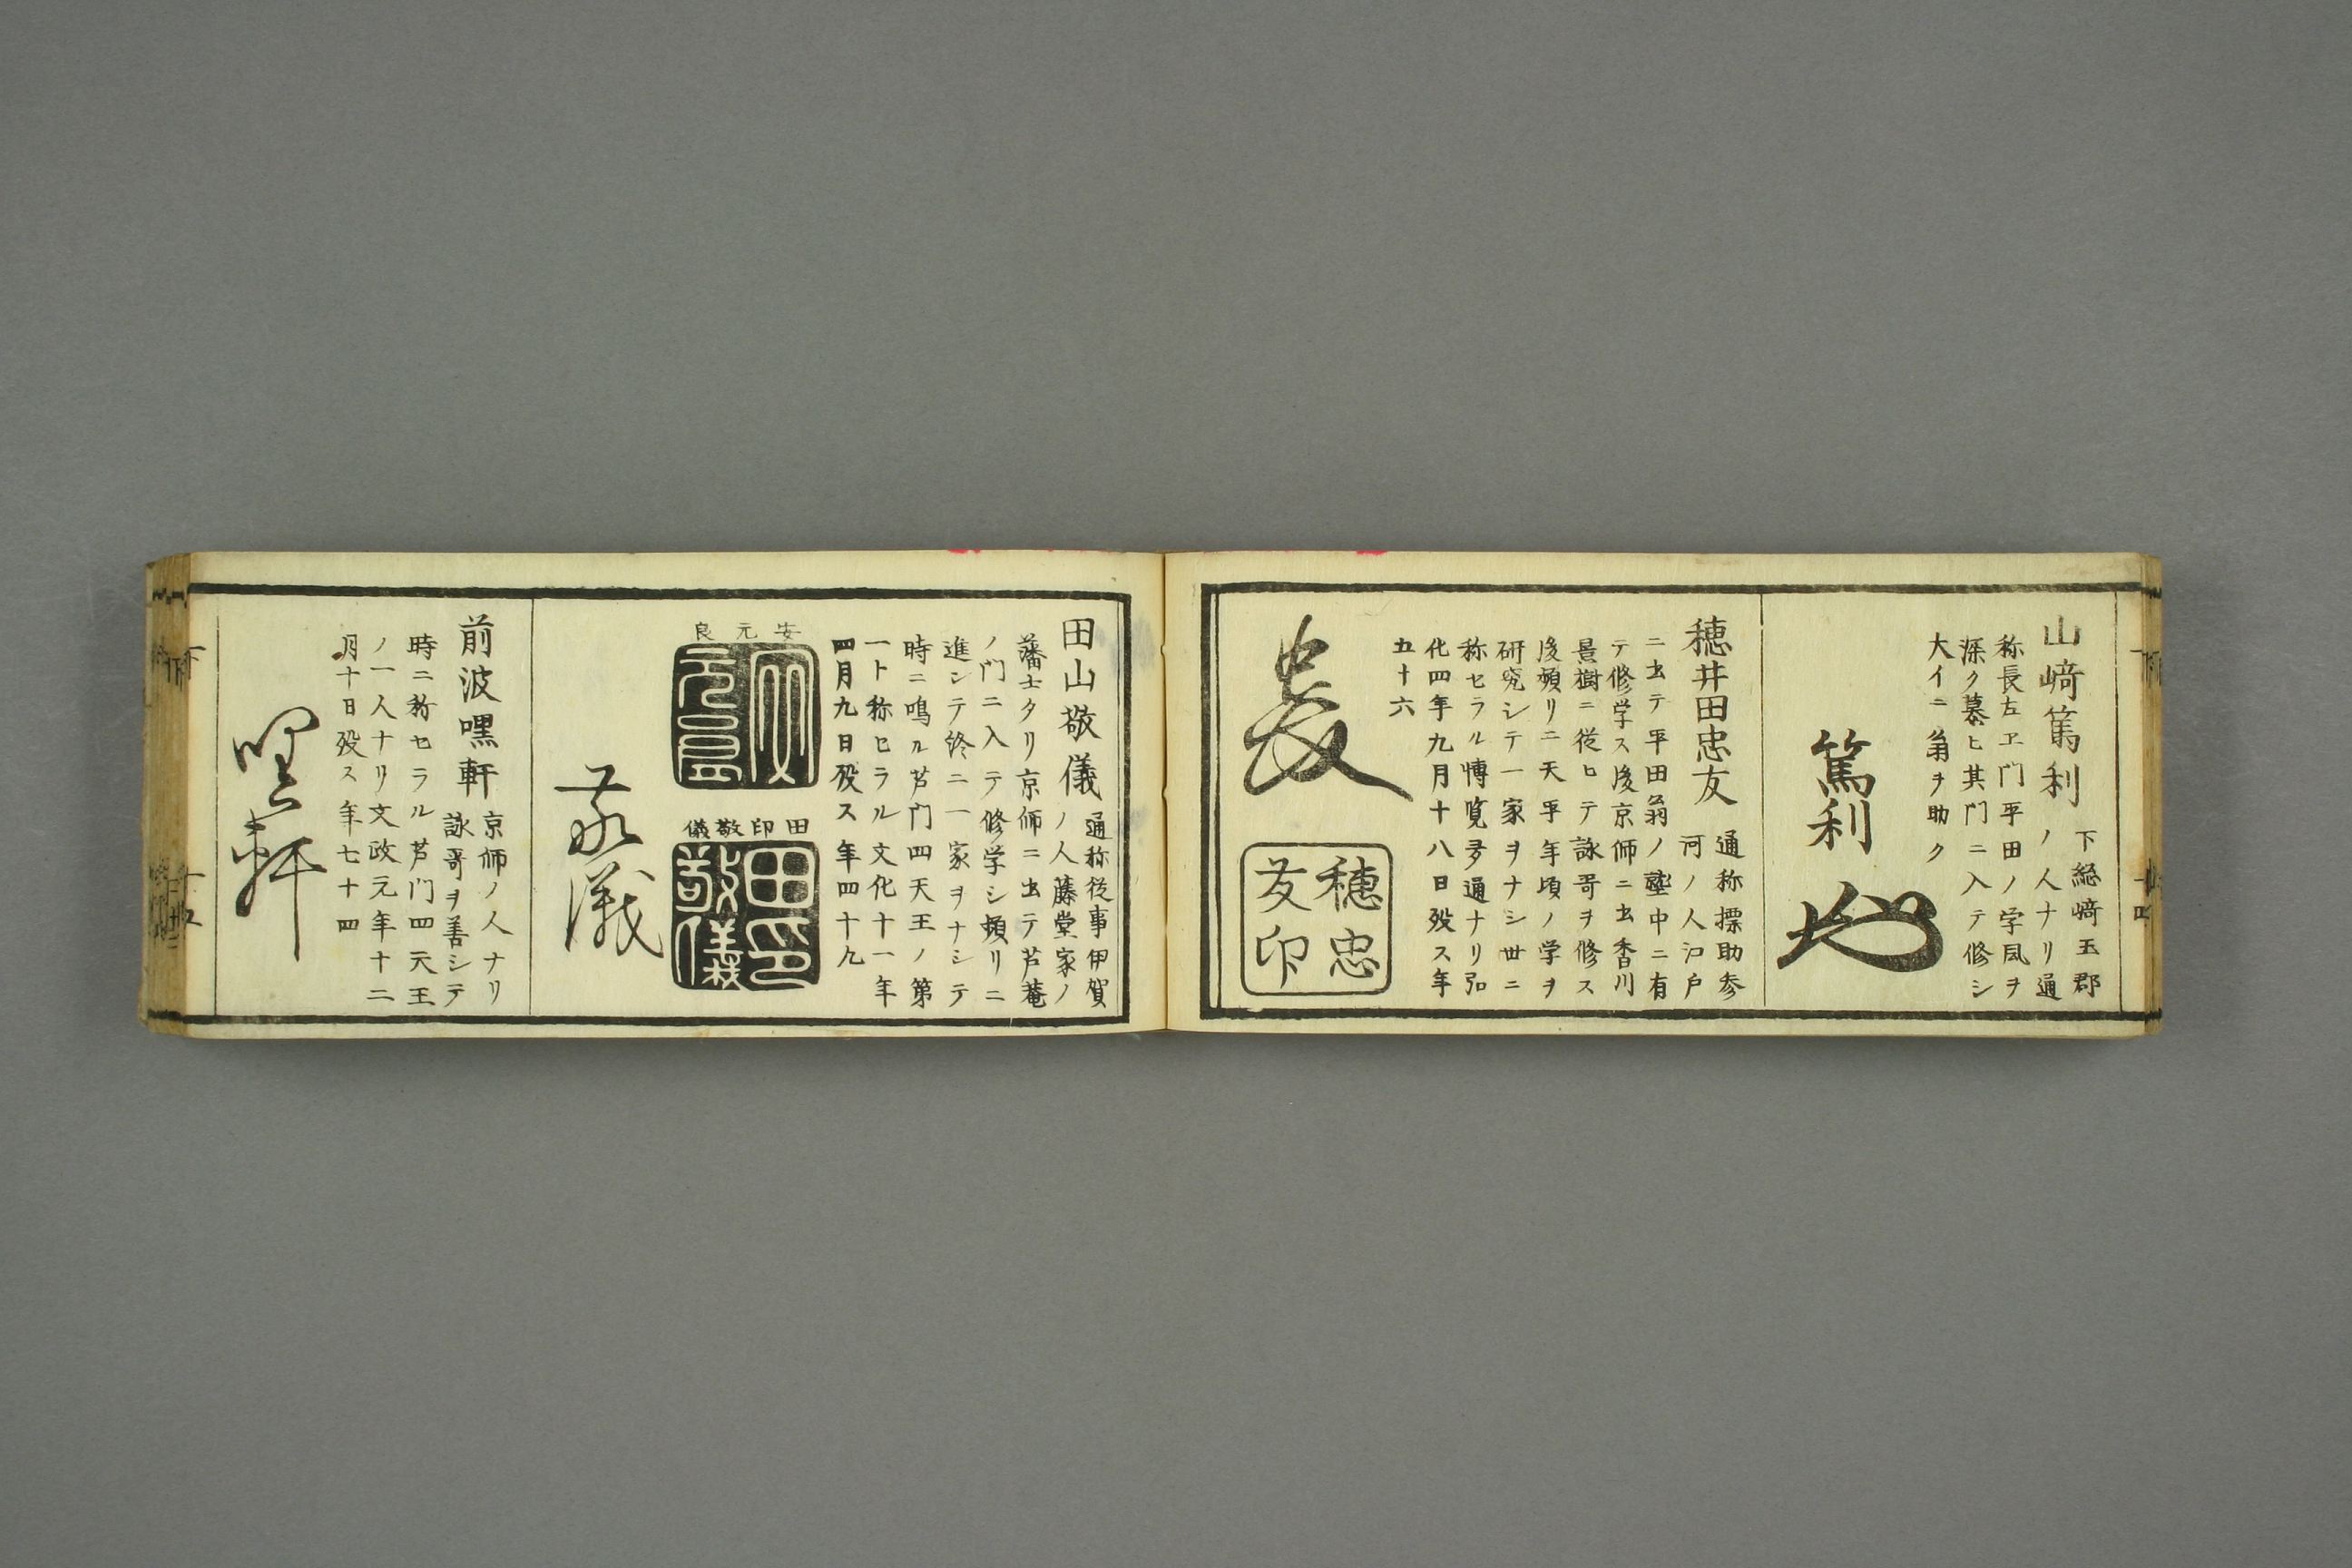 山﨑篤利
下総﨑玉郡
ノ人ナリ通
称長左エ門平田ノ学風ヲ
深ク慕ヒ其門ニ入テ修シ
大イニ翁ヲ助ク
篤利
穂井田忠友
通称摽助参
河ノ人江戸
ニ出テ平田翁ノ塾中ニ有
テ修学ス後京師ニ出香川
景樹ニ従ヒテ詠哥ヲ修ス
後頻リニ天平年頃ノ学ヲ
研究シテ一家ヲナシ世ニ
称セラル博覧多通ナリ弘
化四年九月十八日歿ス年
五十六
穂忠
友印
田山敬儀
通称従事伊賀
ノ人藤堂家ノ
藩士タリ京師ニ出テ芦菴
ノ門ニ入テ修学シ頻リニ
進シテ終ニ一家ヲナシテ
時ニ鳴ル芦门四天王ノ第
一ト称セラル文化十一年
四月九日歿ス年四十九
安元良
田印敬儀
敬儀
前波嘿軒
京師ノ人ナリ
詠哥ヲ善シテ
時ニ称セラル芦门四天王
ノ一人ナリ文政元年十二
月十日歿ス年七十四
嘿軒